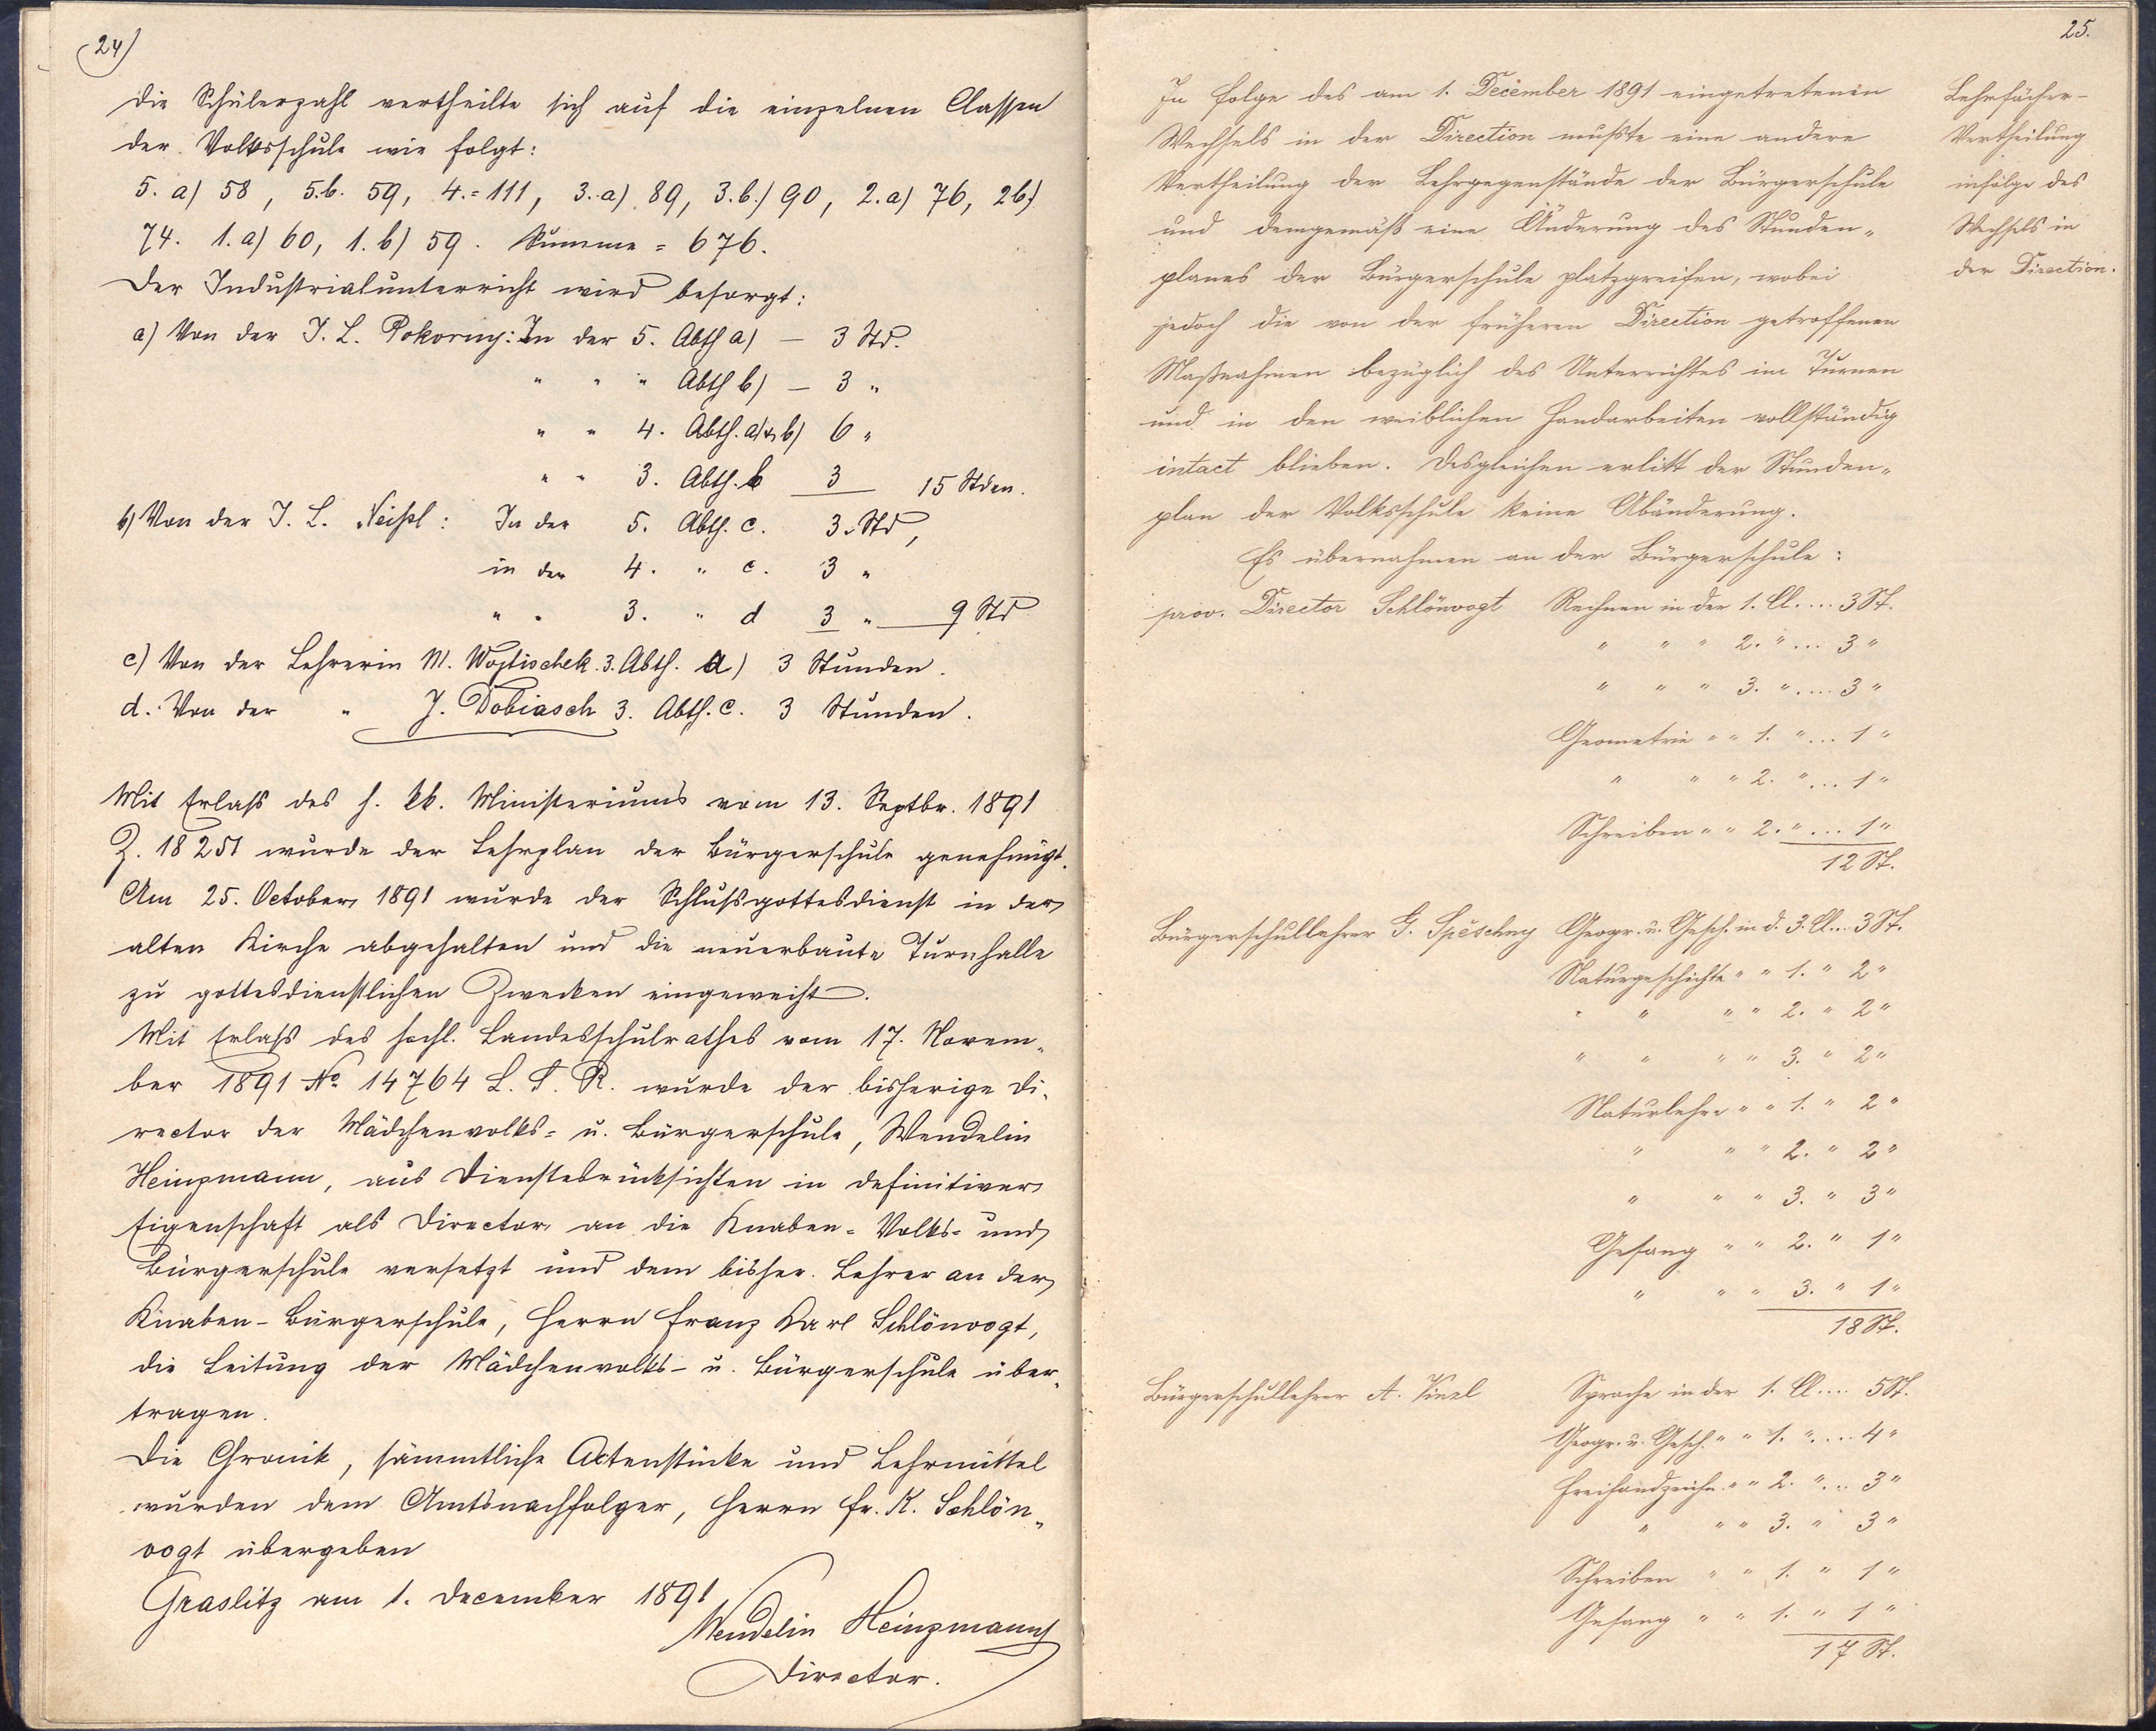 24)
Die Schülerzahl vertheilte sich auf die einzelnen Classen
der Volksschule wie folgt:
5. a) 58, 5.b. 59, 4.=111, 3.a) 89, 3.b.) 90, 2.a) 76, 2b)
74. 1.a) 60, 1.b) 59. Summe = 676.
Der Industrialunterricht wird besorgt:
a) Von der I. L. Pokorny: In der 5. Abth a) — 3 Std.
" " " Abth b) — 3 "
" " 4. Abth. a)+b) 6 "
" " 3. Abth. b 3 15 Stden.
b) Von der I. L. Neißl: In der 5. Abth. c. 3. Std,
in der 4. " c. 3 "
" " 3. " d 3 " 9 Std
c) Von der Lehrerin M. Wojtischek. 3. Abth. a) 3 Stunden.
d. Von der " J. Dobiasch 3. Abth. c. 3 Stunden.
Mit Erlaß des h. kk. Ministeriums vom 13. Septbr. 1891
Z. 18251 wurde der Lehrplan der Bürgerschule genehmigt.
Am 25. October 1891 wurde der Schlußgottesdienst in der
alten Kirche abgehalten und die neuerbaute Turnhalle
zu gottesdienstlichen Zwecken eingeweiht.
Mit Erlaß des hochl. Landesschulrathes vom 17. Novem„
ber 1891 No 14764 L. S. R. wurde der bisherige Di„
rector der Mädchenvolks= u. Bürgerschule, Wendelin
Heinzmann, aus Dienstesrücksichten in definitiver
Eigenschaft als Director an die Knaben= Volks= und
Bürgerschule versetzt und dem bisher. Lehrer an der
Knaben-Bürgerschule, Herrn Franz Karl Schlönvogt,
die Leitung der Mädchenvolks- u. Bürgerschule über„
tragen.
Die Chronik, sämmtliche Actenstücke und Lehrmittel
wurden dem Amtsnachfolger, Herrn Fr. K. Schlön„
vogt übergeben
Graslitz am 1. December 1891
Wendelin Heinzmann
Director.
25.
In Folge des am 1. December 1891 eingetretenen
Wechsels in der Direction mußte eine andere
Vertheilung der Lehrgegenstände der Bürgerschule
und demgemäß eine Änderung des Stunden„
planes der Bürgerschule platzgreifen, wobei
jedoch die von der früheren Direction getroffenen
Maßnahmen bezüglich des Unterrichtes im Turnen
und in den weiblichen Handarbeiten vollständig
intact blieben. Desgleichen erlitt der Stunden„
plan der Volksschule keine Abänderung.
Lehrfächer-
Vertheilung
infolge des
Wechsels in
der Direction.
Es übernahmen an der Bürgerschule:
prov. Director Schlönvogt Rechnen in der 1. Cl.... 3 St.
" " " 2. " ... 3 "
" " " 3. " .... 3 "
Geometrie " " 1. " ... 1 "
" " " 2. " ... 1 "
Schreiben " " 2. " ... 1 "
12 St.
Bürgerschullehrer G. Spěschny Geogr. u. Gesch. in d. 3. Cl... 3 St.
Naturgeschichte " " 1. " 2 "
" " " " 2. " 2 "
" " " " 3. " 2 "
Naturlehre " " 1. " 2 "
" " " 2. " 2 "
" " " 3. " 3 "
Gesang " " 2. " 1 "
" " " 3. " 1 "
18 St.
Bürgerschullehrer A. Kinzl Sprache in der 1. Cl.... 5 St.
Geogr. u. Gesch. " " 1. " .... 4 "
Freihandzeichn. " " 2. " ... 3 "
" " " 3. " 3 "
Schreiben " " 1. " 1 "
Gesang " " 1. " 1 "
17 St.